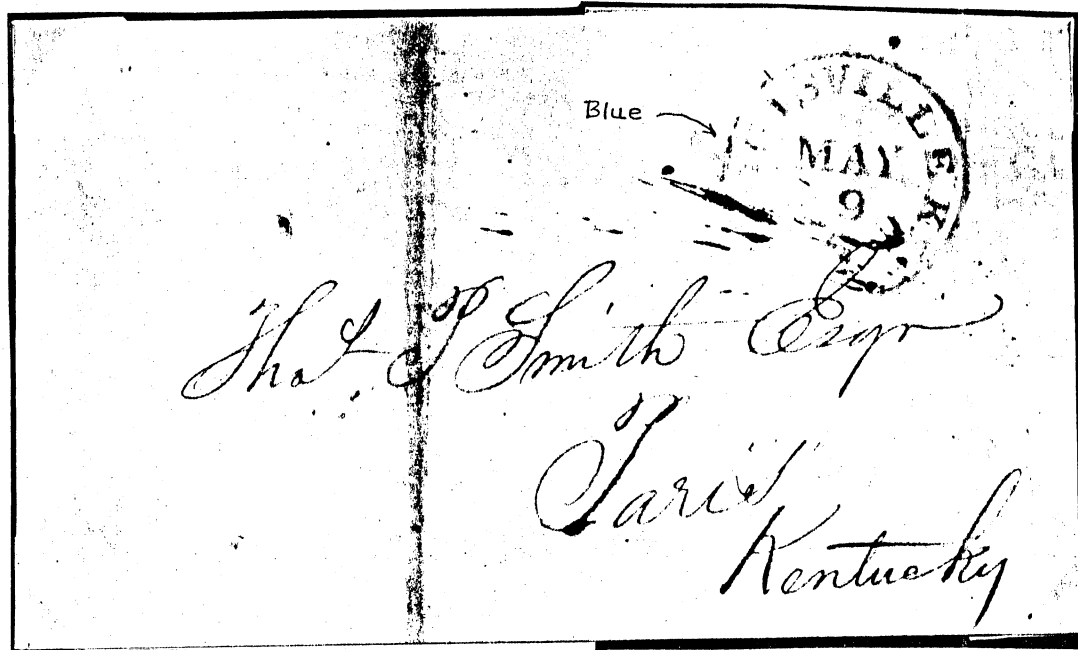 Blue
MAY
9
Thos P Smith Esqr
Paris
Kentucky